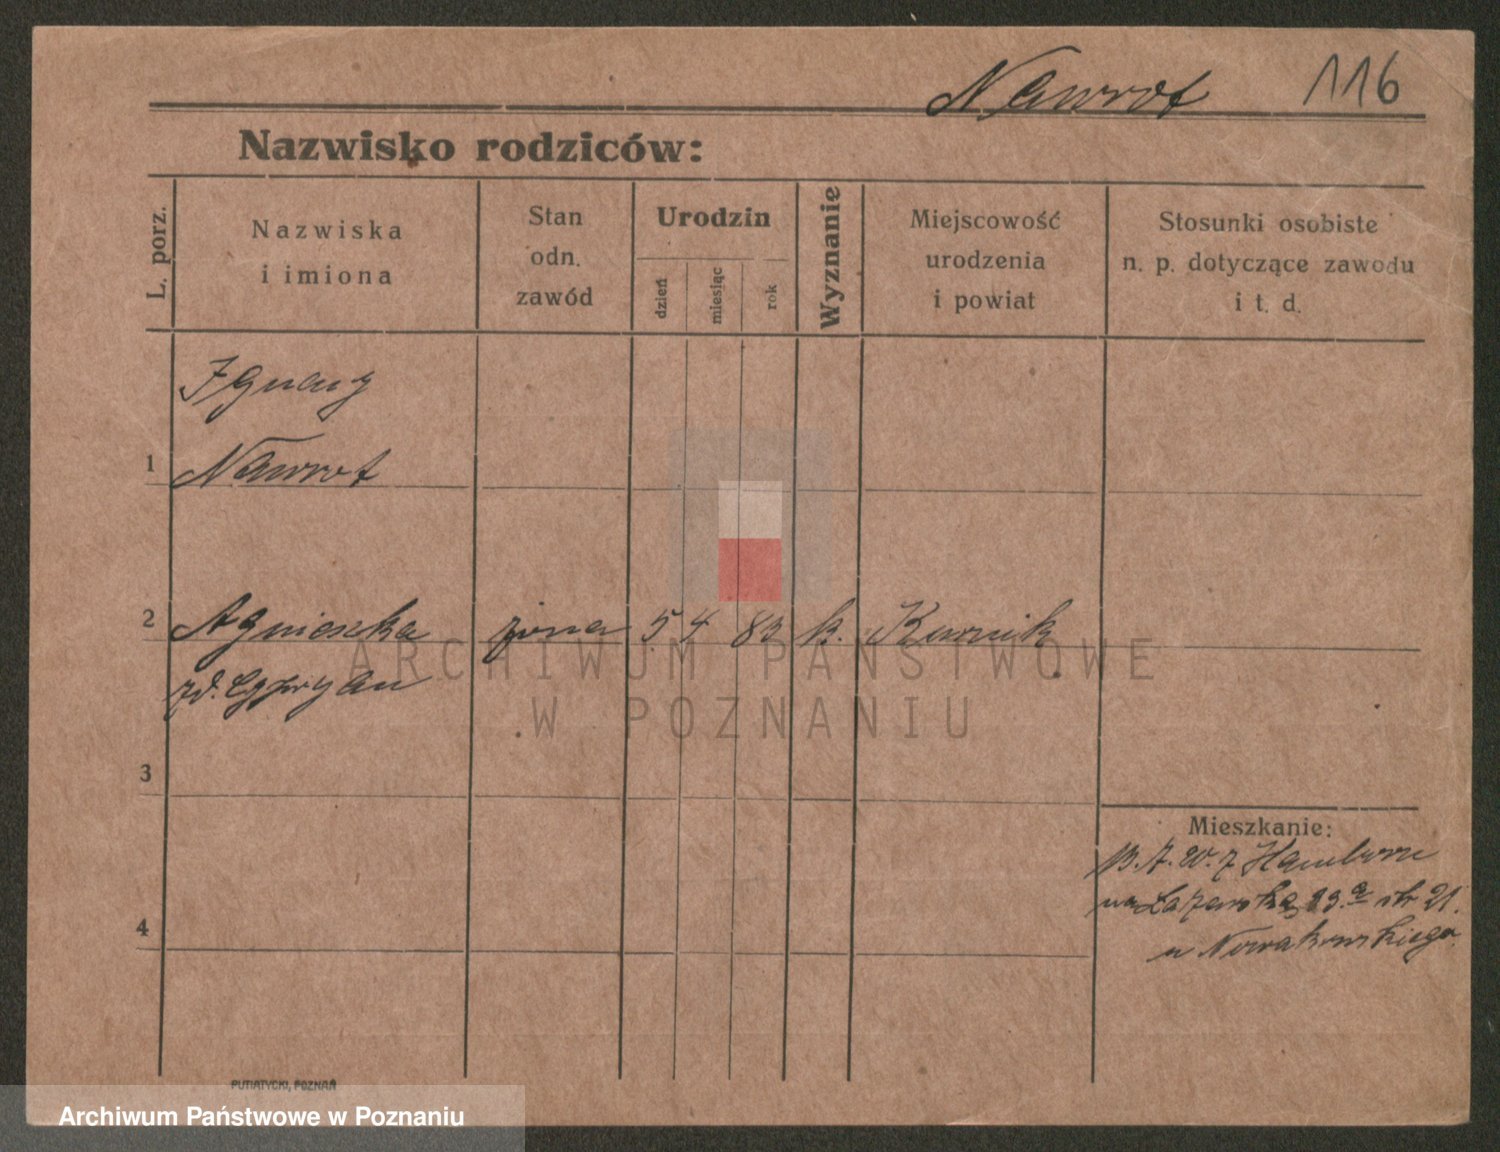 Nawrot 116
Nazwisko rodziców:
L. porz.
Nazwiska
i imiona
Stan
odn.
zawód
Urodzin
dzień
miesiąc
rok
Wyznanie
Miejscowość
urodzenia
i powiat
Stosunki osobiste
n. p. dotyczące zawodu
i t. d.
Ignacy
1 Nawrot
2 Agnieszka żona 5 4 83 k. Kurnik
zd. Cypryan
3
Mieszkanie:
z Hamborn
na Łazarska 23.a str 21.
u Nowakowskiego.
4
PUTIATYCKI, POZNAŃ
ARCHIWUM PAŃSTWOWE
W POZNANIU
Archiwum Państwowe w Poznaniu